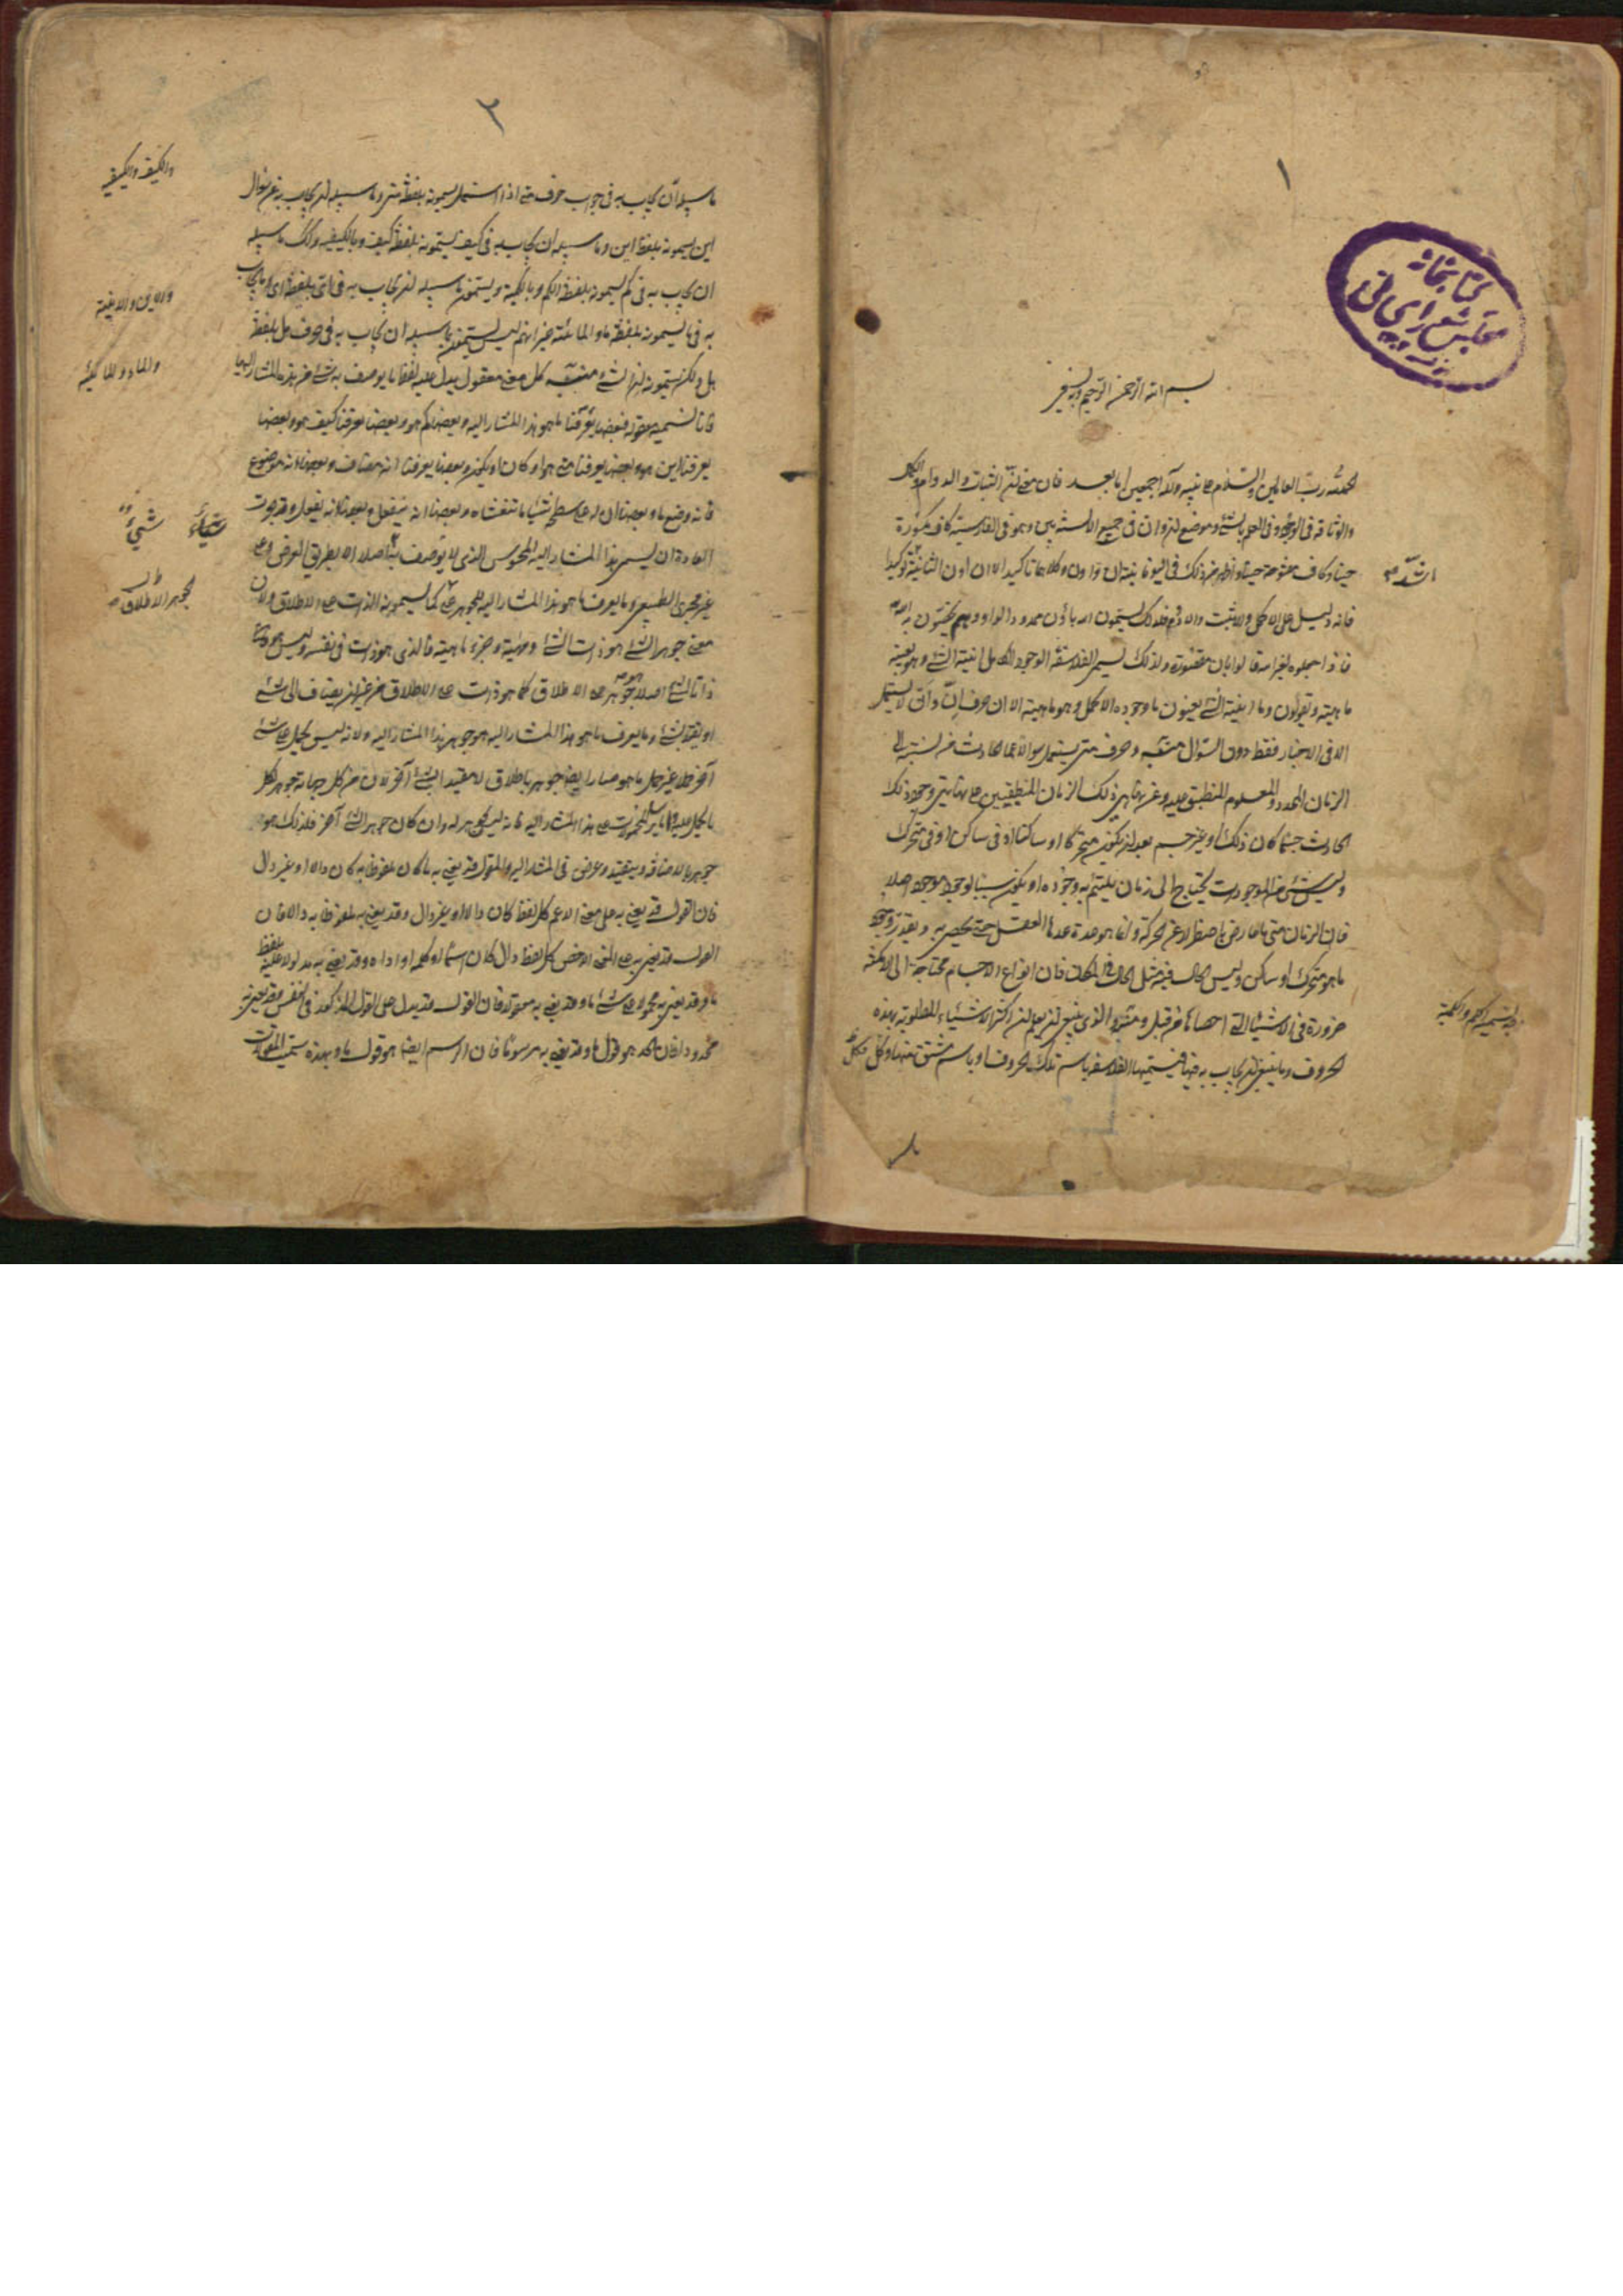 ١
كتابخانه
مجلس شورای ملی
بسم الله الرحمن الرحيم وبه نستعين
الحمد لله رب العالمين والسلام على نبيه وآله اجمعين اما بعد فان معنى ان الثبات والدوام والكمال
والوثاقة فى الوجود وفى العلم بالشئ وموضع ان وان فى جميع الالسنة بين وهو فى الفارسية كاف مكسورة
حينا وكاف مفتوحة حينا واظهر من ذلك فى اليونانية ان و اون وكلاهما تاكيد الا ان اون الثانية توكيدا
اشد
فانه دليل على الاكمل والاثبت والادوم فلذلك يسمون الله باون ممدود الواو وهم يخصون به الله
فاذا جعلوه لغير الله قالوا بان مقصورة ولذلك يسمى الفلاسفة الوجود الكامل انية الشئ وهو بعينه
ماهيته ويقولون وما انية الشئ يعنون ما وجوده الاكمل وهو ماهيته الا ان حرف ان وان لا يستعمل
الا فى الاخبار فقط دون السؤال وحرف متى يستعمل سوالا عما الحادث من نسبته الى
الزمان المحدود المعلوم المنطبق عليه وعن نهايتى ذلك الزمان المنطبقين على نهايتى وجود ذلك
الحادث جسما كان ذلك او غير جسم بعد ان يكون متحركا او ساكنا او فى ساكن او فى متحرك
وليس شئ من الموجودات يحتاج الى زمان يلتئم به وجوده او يكون سببا لوجود موجود اصلا
فان الزمان متى ما عارض باضطرار عن الحركة وانما هو عدة عدها العقل حتى يحصى به ويقدر وجود
ما هو متحرك او ساكن وليس الحال فيه مثل الحال فى المكان فان انواع الاجسام محتاجة الى الامكنة
ضرورة فى الاشياء التى احصاها من قبل و الذى ينبغى ان يعلم ان اكثر الاشياء المطلوبة بهذه
الحروف وما ينبغى ان يجاب به فيها فيسميها الفلاسفة باسم تلك الحروف او باسم مشتق منها وكل
٢
ما سبيله ان يجاب به فى جواب حرف متى اذا استعمل يسمونه بلفظة متى وما سبيله ان يجاب به عن سؤال
اين يسمونه بلفظ اين وما سبيله ان يجاب به فى كيف يسمونه بلفظة كيف وبالكيفية وكذلك ما سبيله
والكيف والكيفية
ان يجاب به فى كم يسمونه بلفظة الكم وبالكمية ويسمون ما سبيله ان يجاب به فى اى بلفظة اى وما يجاب
والاين والاينية
به فى ما يسمونه بلفظة ما والمائية غير انهم ليس يسمون ما سبيله ان يجاب به فى حرف هل بلفظة
هل ولكن يسمونه ان الشئ كل معنى معقول يدل عليه لفظ ما يوصف به شئ من هذه المشار اليها
فانا نسميه مقولة فبعضها يعرفنا ما هو هذا المشار اليه وبعضها كم هو وبعضها يعرفنا كيف هو وبعضها
يعرفنا اين هو وبعضها يعرفنا متى هو او كان او يكون وبعضها يعرفنا انه مضاف وبعضها انه موضوع
فانه وضع ما وبعضها ان له على سطحه شيئا ما يتغشاه وبعضها انه ينفعل وبعضها انه يفعل وقد جرت
العادة ان يسمى هذا المشار اليه المحسوس الذى لا يوصف به شئ اصلا الا بطريق العرض وعلى
غير مجرى الطبيعى وما يعرف ما هو هذا المشار اليه الجوهر على كما يسمونه الذات على الاطلاق ولان
الجوهر الاطلاق
معنى جوهر الشئ هو ذات الشئ وماهيته وجزء ماهيته فالذى هو ذات فى نفسه وليس هو
ذاتا لشئ اصلا هو جوهر على الاطلاق كما هو ذات على الاطلاق من غير ان يضاف الى شئ
او يقيد بشئ وما يعرف ما هو هذا المشار اليه هو جوهر هذا المشار اليه ولانه ليس يحمل على شئ
آخر حملا غير حمل ما هو صار ايضا جوهرا باطلاق لا مقيدا بشئ آخر لان من كل جهاته جوهر لكل
ما يحمل عليه واما سائر المحمولات على هذا المشار اليه فانه ليس جوهر له وان كان جوهر الشئ آخر فلذلك هو
جوهر بالاضافة وبتقييد وعرض فى المشار اليه والقول قد يعنى به ما كان ملفوظا به كان دالا او غير دال
فان القول قد يعنى به على المعنى الاعم كل لفظ كان دالا او غير دال وقد يعنى به ملفوظا به دالا فان
القول قد يعنى به على المعنى الاخص كل لفظ دال كان اسما او كلمة او اداة وقد يعنى به مدلولا عليه بلفظ
ما وقد يعنى به محمولا على شئ ما وقد يعنى به معقولا فان القول قد يدل على القول المركوز فى النفس وقد يعنى به
محدودا فان الحد هو قول ما وقد يعنى به مرسوما فان الرسم ايضا هو قول ما وبهذه سميت المقولات